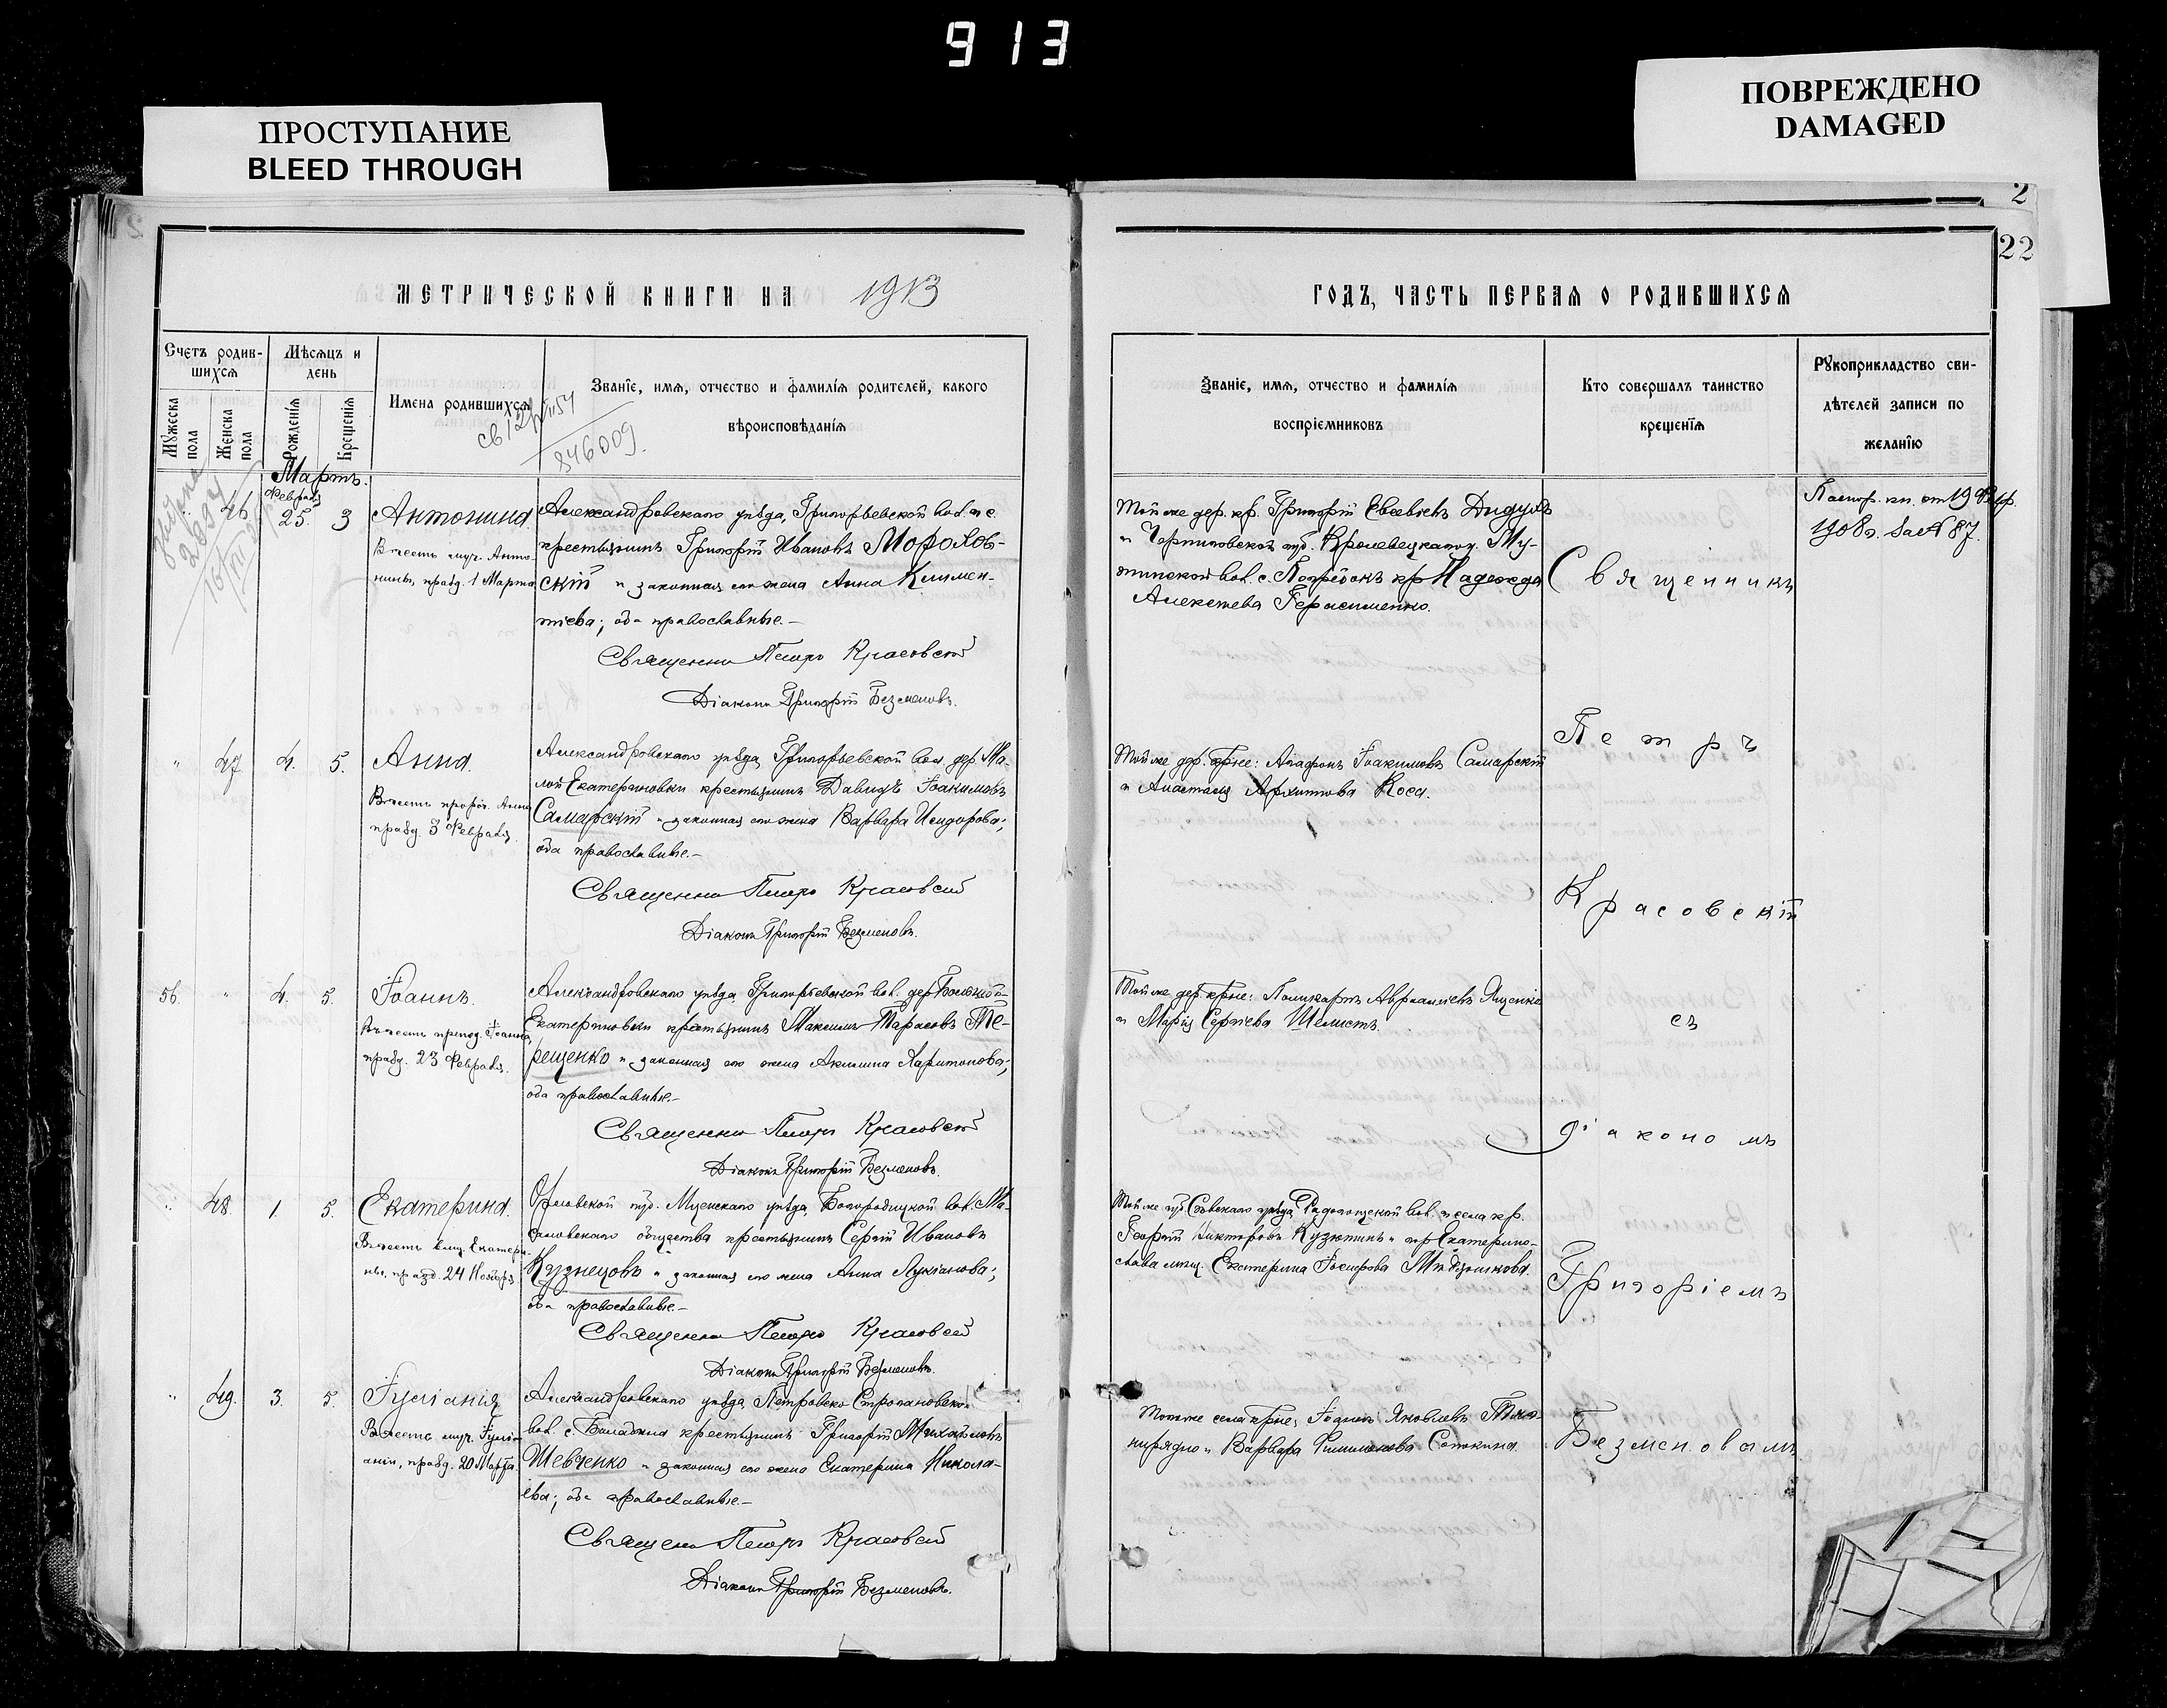 913
ПРОСТУПАНИЕ
BLEED THROUGH
ПОВРЕЖДЕНО
DAMAGED
2
22
МЕТРИЧЕСКОЙ КНИГИ НА 1913
Счетъ родив-
шихся
Мѣсяцъ и
день
Мужеска
пола
Женска
пола
Рожденія
Крещенія
Имена родившихся
Званіе, имя, отчество и фамилія родителей, какого
вѣроисповѣданія
846009.
Мартъ.
46
Февраля
25. 3
Антонина.
Въ честь муч. Анто-
нины, празд. 1 Марта
Александровскаго уѣзда, Григорьевской вол. и с.
крестьянинъ Григорій Ивановъ Морохов-
скій и законная его жена Анна Климен-
тіева; оба православные.-
Священникъ Петръ Красовскій
Діаконъ Григорій Безменовъ.
" 47 4. 5.
Анна.
Въ честь прор. Анны
празд. 3 Февраля.
Александровскаго уѣзда, Григорьевской вол. дер. Ма-
лой Екатериновки крестьянинъ Давидъ Іоакимовъ
Самарскій и законная его жена Варвара Исидорова;
оба православные.-
Священникъ Петръ Красовскій
Діаконъ Григорій Безменовъ.
56. " 4. 5.
Іоаннъ.
Въ честь препод. Іоанна,
празд. 23 Февраля.
Александровскаго уѣзда, Григорьевской вол. дер. Большой
Екатериновки крестьянинъ Максимъ Тарасовъ Те-
рещенко и законная его жена Акилина Харитонова;
оба православные.-
Священникъ Петръ Красовскій
Діаконъ Григорій Безменовъ.
" 48 1. 5.
Екатерина.
Въ честь влмц. Екатери-
ны, празд. 24 Ноября
Орловской губ. Мценскаго уѣзда, Богородицкой вол. Ма-
словскаго общества крестьянинъ Сергій Ивановъ
Кузнецовъ и законная его жена Анна Лукіанова;
оба православные.-
Священникъ Петръ Красовскій
Діаконъ Григорій Безменовъ.
" 49. 3. 5.
Іуліанія
Въ честь муч. Іулі-
аніи, празд. 20 Марта.
Александровскаго уѣзда, Петровско
вол. с. крестьянинъ Григорій Михайловъ
Шевченко и законная его жена Екатерина Никола-
ева; оба православные.-
Священникъ Петръ Красовскій
Діаконъ Григорій Безменовъ.
ГОДЪ, ЧАСТЬ ПЕРВАЯ О РОДИВШИХСЯ
Званіе, имя, отчество и фамилія
воспріемниковъ
Кто совершалъ таинство
крещенія
Рукоприкладство сви-
дѣтелей записи по
желанію
Той же дер. кр. Григорій Евсевіевъ
и Черниговской губ. Кролевецкаго у.
вол. с. кр. Надежда
Алексѣева Герасименко.
Той же дер. кр-не: Агафонъ Іоакимовъ Самарскій
и Анастасія Архипова Коса.
Той же дер. кр-не: Поликарпъ Аврамовъ Яценко
и Марія Сергіева Шелистъ.
Той же губ. Сѣвскаго уѣзда, вол. и села кр.
Георгій Викторовъ Кузютинъ и гор. Екатерино-
слава мѣщ. Екатерина Іосифова
Того же села кр-не: Іоаннъ Яковлевъ
и Варвара Филимонова Сопкина.
Священникъ
Петръ
Красовскій
съ
діакономъ
Григоріемъ
Безменовымъ
от 19 Февр.
1908 г. за № 87.